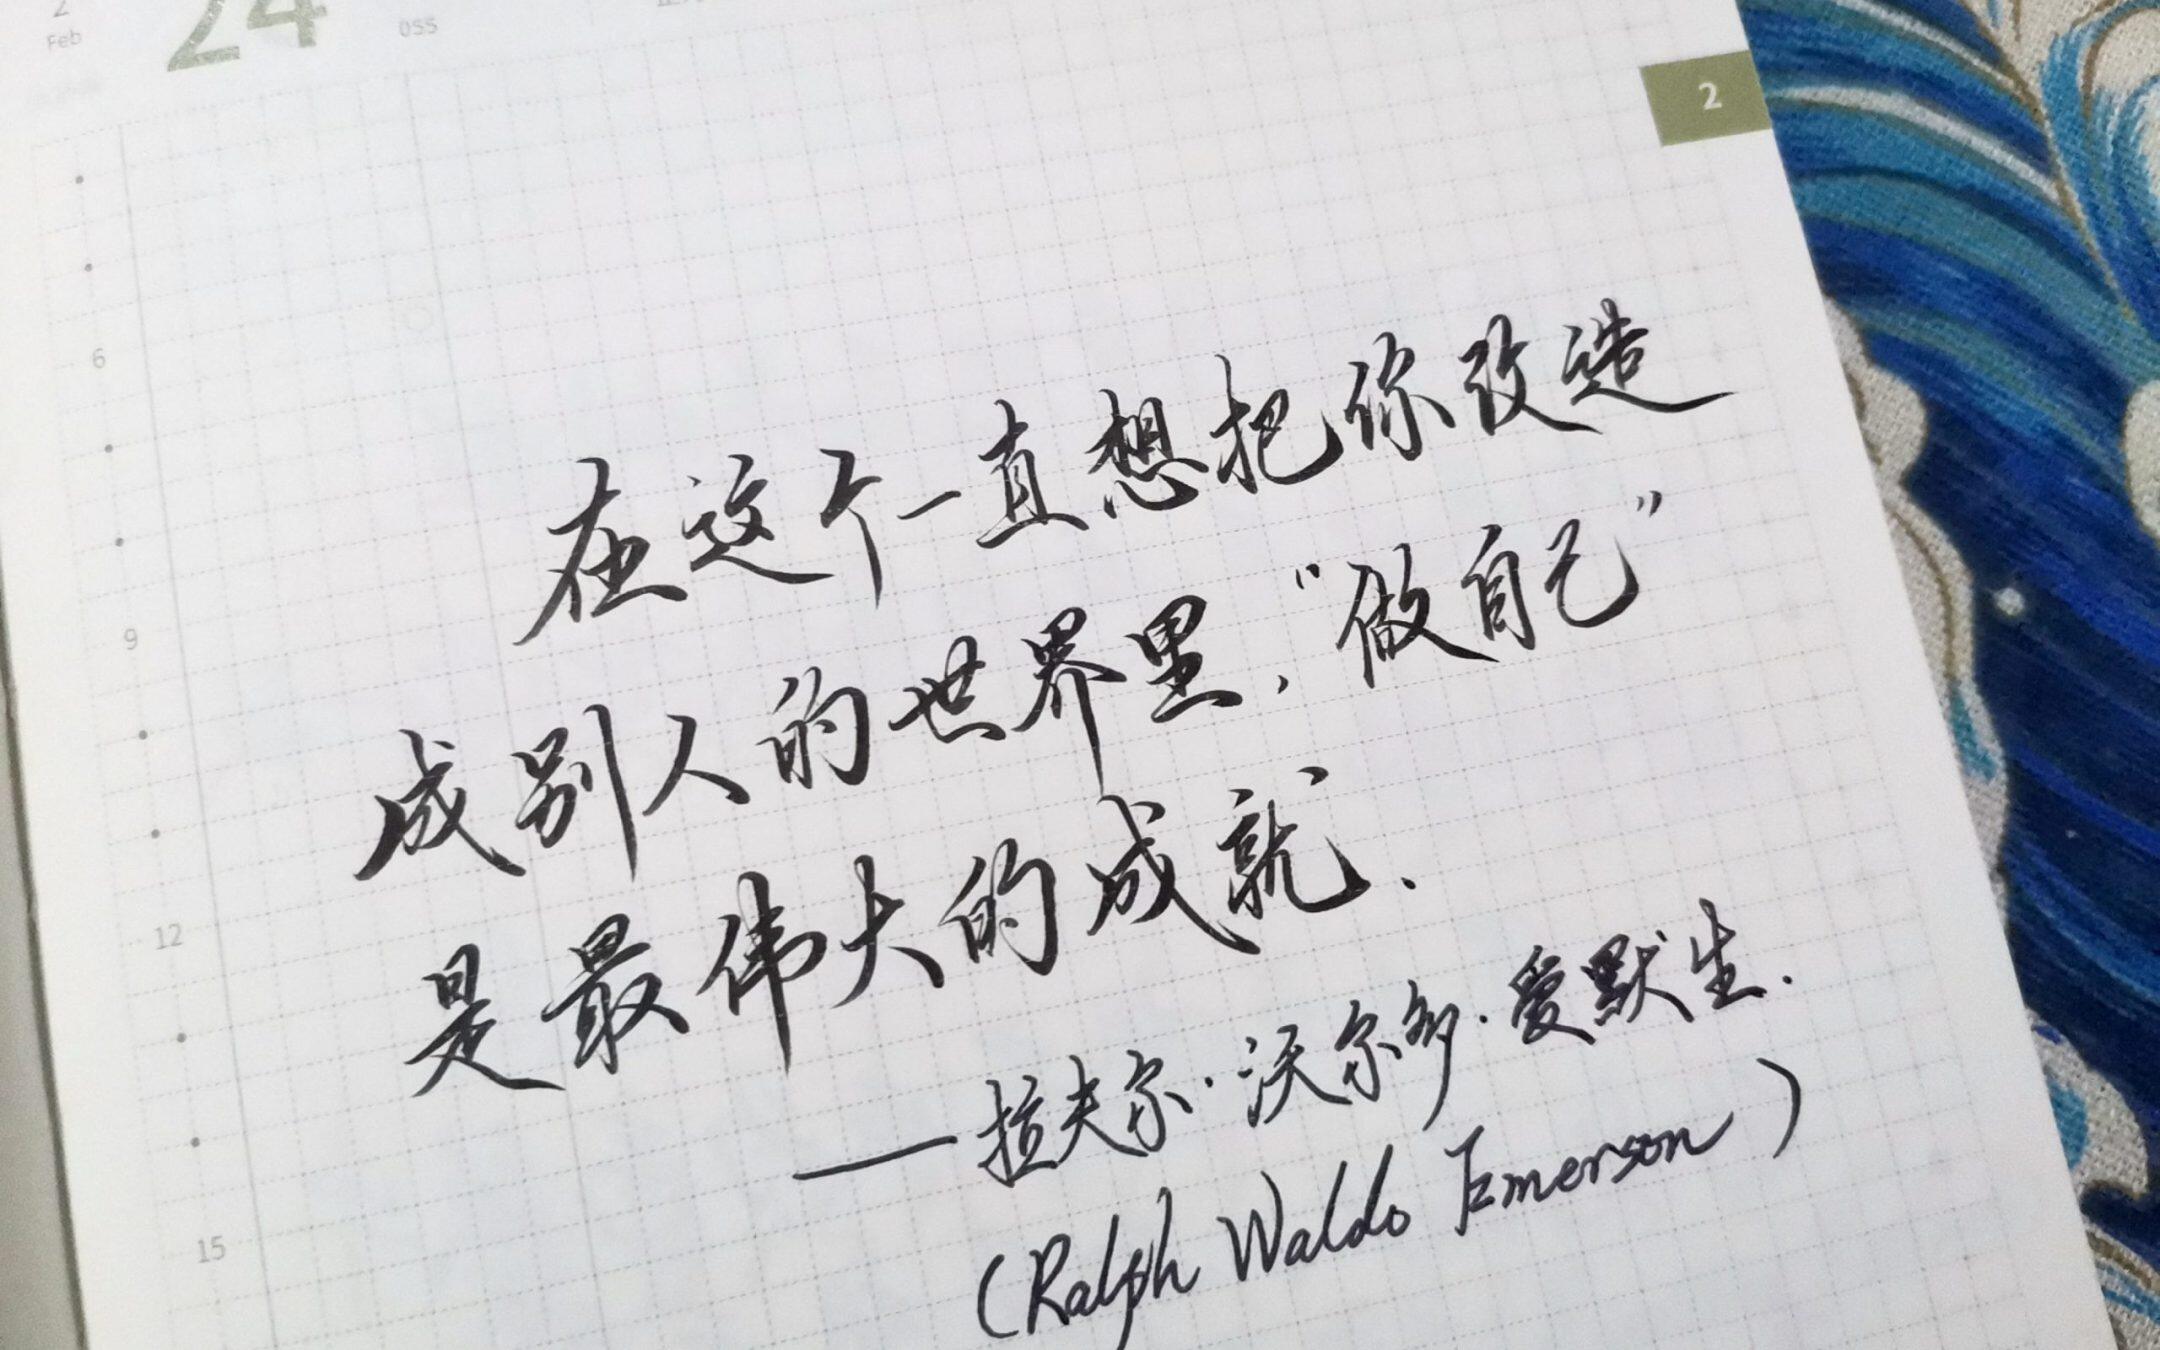 2
Feb
24
055
2
6
在这个一直想把你改造
9
成别人的世界里，“做自己”
12
是最伟大的成就.
——拉夫尔·沃尔多·爱默生.
15
(Ralph Waldo Emerson)